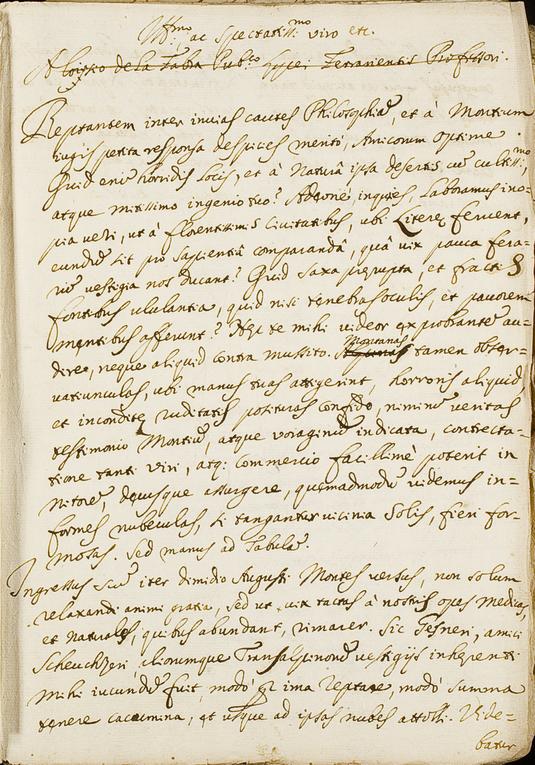 Ill:mo ac Spectatiss:mo viro etc.
Aloisio de la Fabra Pub:co Gymn: Ferrariensis Professori.
Reptantem inter invias cautes Philosophiã, et à Montium
iugis petita responsa despicies meritò, Amicorum Optime.
Quid eniũ horridis locis, et à Naturâ ipsa desertis cũ cultissi:mo
atque mitissimo ingenio tuo? Adeonè, inquies, laboramus ino-
pia veri, ut à florentissimis Civitatibus, ubi Literę fervent,
eundũ sit pro sapientiâ comparandâ, quà vix pauca fera-
rũ vestigia nos ducant? Quid saxa prærupta, et fractis
fontibus ululantia, quid nisi tenebras oculis, et pavorem
mentibus afferunt? Hęc te mihi videor exprobrantẽ au-
dire, neque aliquid contra mussito. Montanas tamen obser-
vatiunculas, ubi manus tuas attigerint, horroris aliquid
et inconditę ruditatis posituras confido, nimirũ veritas
testimonio Montiũ, atque voraginũ indicata, contrecta-
tione tanti viri, atq: commercio facillimè poterit in
nitorẽ, decusque assurgere, quemadmodũ videmus in-
formes nubeculas, si tangantur vicinia Solis, fieri for-
mosas. Sed manus ad Tabulã.
Ingressus sũ iter dimidio Augusti Montes versus, non solum
relaxandi animi gratia, sed ut vix tactas à nostris opes Medicas,
et Naturales, quibus abundant, rimarer. Sic Gesneri, amici
Scheuchzeri, aliorumque Transalpinorũ vestigijs inhęrenti
mihi iucundũ fuit, modò per ima reptare, modò summa
tenere cacumina, et usque ad ipsas nubes attolli. Vide-
batur